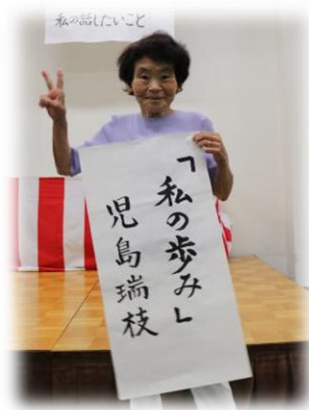 私の話したいこと
「私の歩み」
児島瑞枝